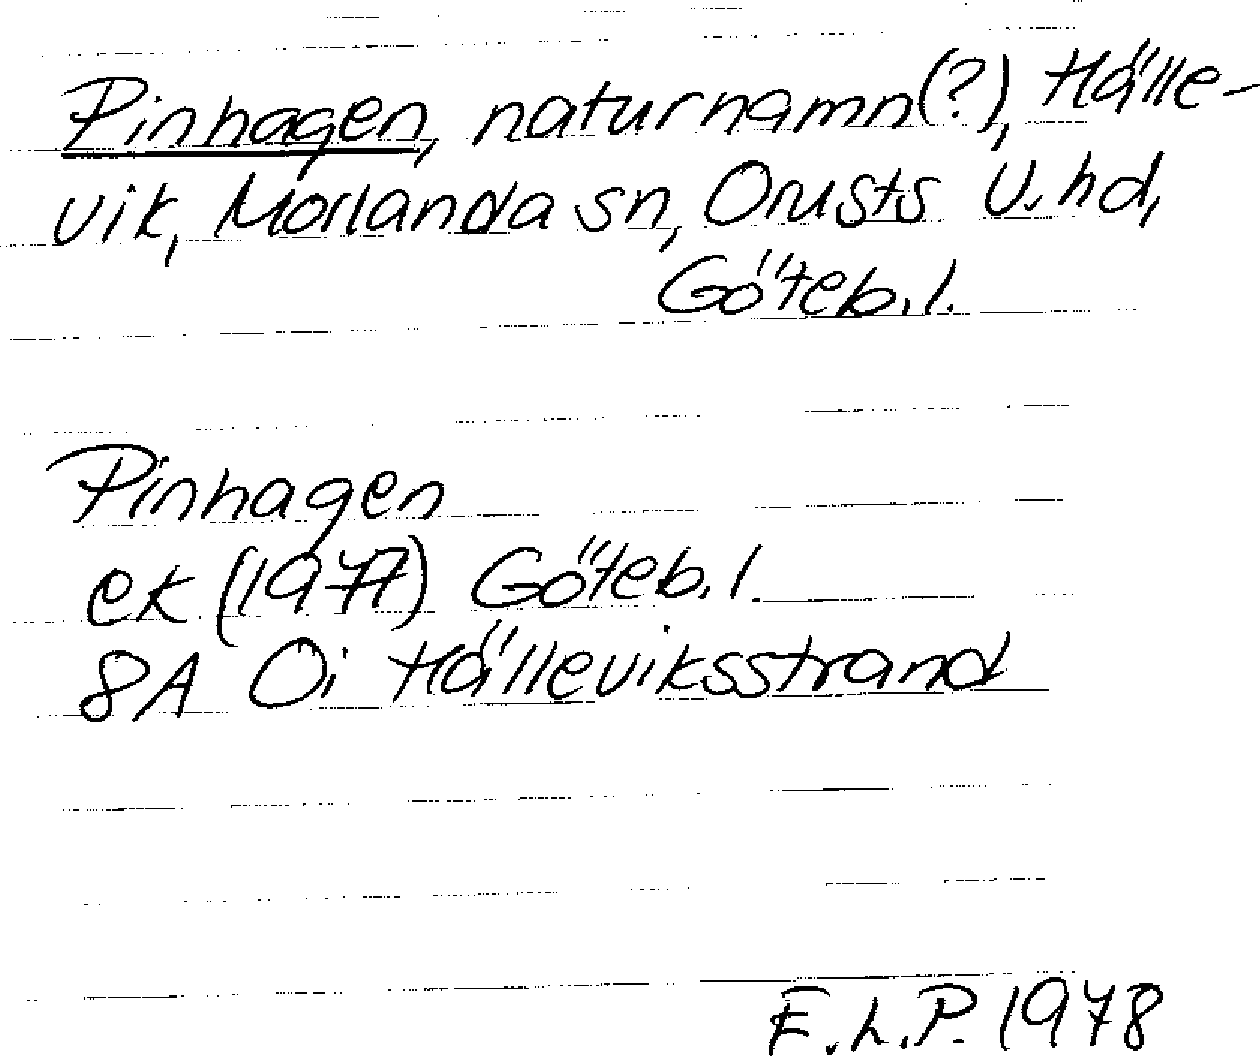 Pinhagen, naturnamn(?), Hälle-
vik, Morlanda sn, Orusts V. hd,
Göteb. l.
Pinhagen
ek (1977) Göteb. l.
8A Oi Hälleviksstrand
E.L.P. 1978